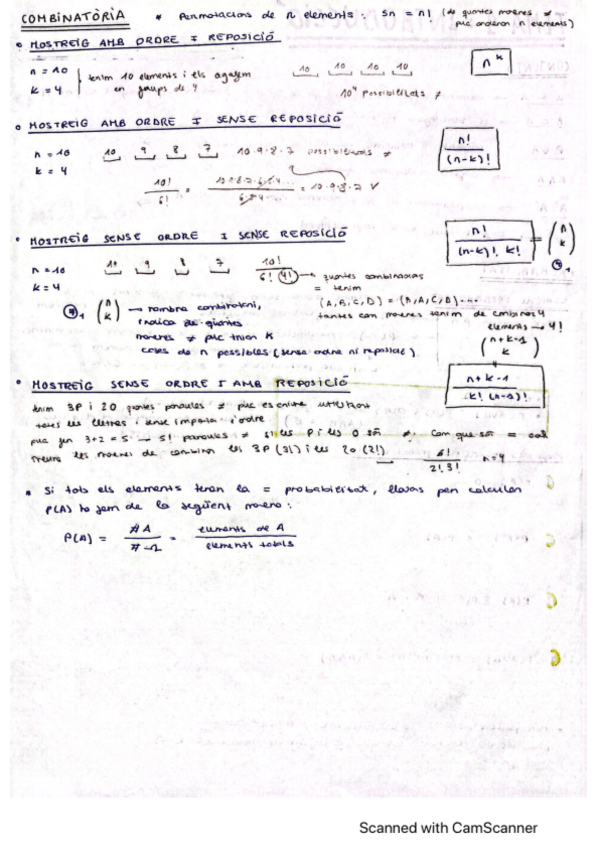 COMBINATÒRIA * Permutacions de n elements: Sn = n! (de quantes maneres ≠
puc ordenar n elements)
• MOSTREIG AMB ORDRE I REPOSICIÓ
n = 10 tenim 10 elements i els agafem 10 10 10 10 n^k
k = 4 en grups de 4 10⁴ possibilitats ≠
• MOSTREIG AMB ORDRE I SENSE REPOSICIÓ
n = 10 10 9 8 7 10·9·8·7 possibilitats ≠ n! / (n-k)!
k = 4
10! / 6! = 10·9·8·7 ✓
• MOSTREIG SENSE ORDRE I SENSE REPOSICIÓ n! / (n-k)! k! = (n k)
n = 10 10 9 8 7 10! / 6! 4! → quantes combinacions
k = 4 = tenim
(A,B,C,D) = (B,A,C,D)...
(n k) → nombre combinatori, tantes com maneres tenim de combinar 4
indica de quantes elements → 4!
maneres ≠ puc triar k (n+k-1 k)
coses de n possibles (sense ordre ni reposició)
• MOSTREIG SENSE ORDRE I AMB REPOSICIÓ n+k-1 / k! (n-1)!
tenim 3P i 20 quantes paraules ≠ puc escriure utilitzant
totes les lletres i sense importar l'ordre
puc fer 3+2 = 5 → 5! paraules ≠ si les P i les O són ≠. Com que són = cal
treure les maneres de combinar les 3P (3!) i les 20 (2!).
2! 3! n=4
* Si tots els elements tenen la = probabilitat, llavors per calcular
P(A) ho fem de la següent manera:
P(A) = #A / #Ω = elements de A / elements totals
Scanned with CamScanner